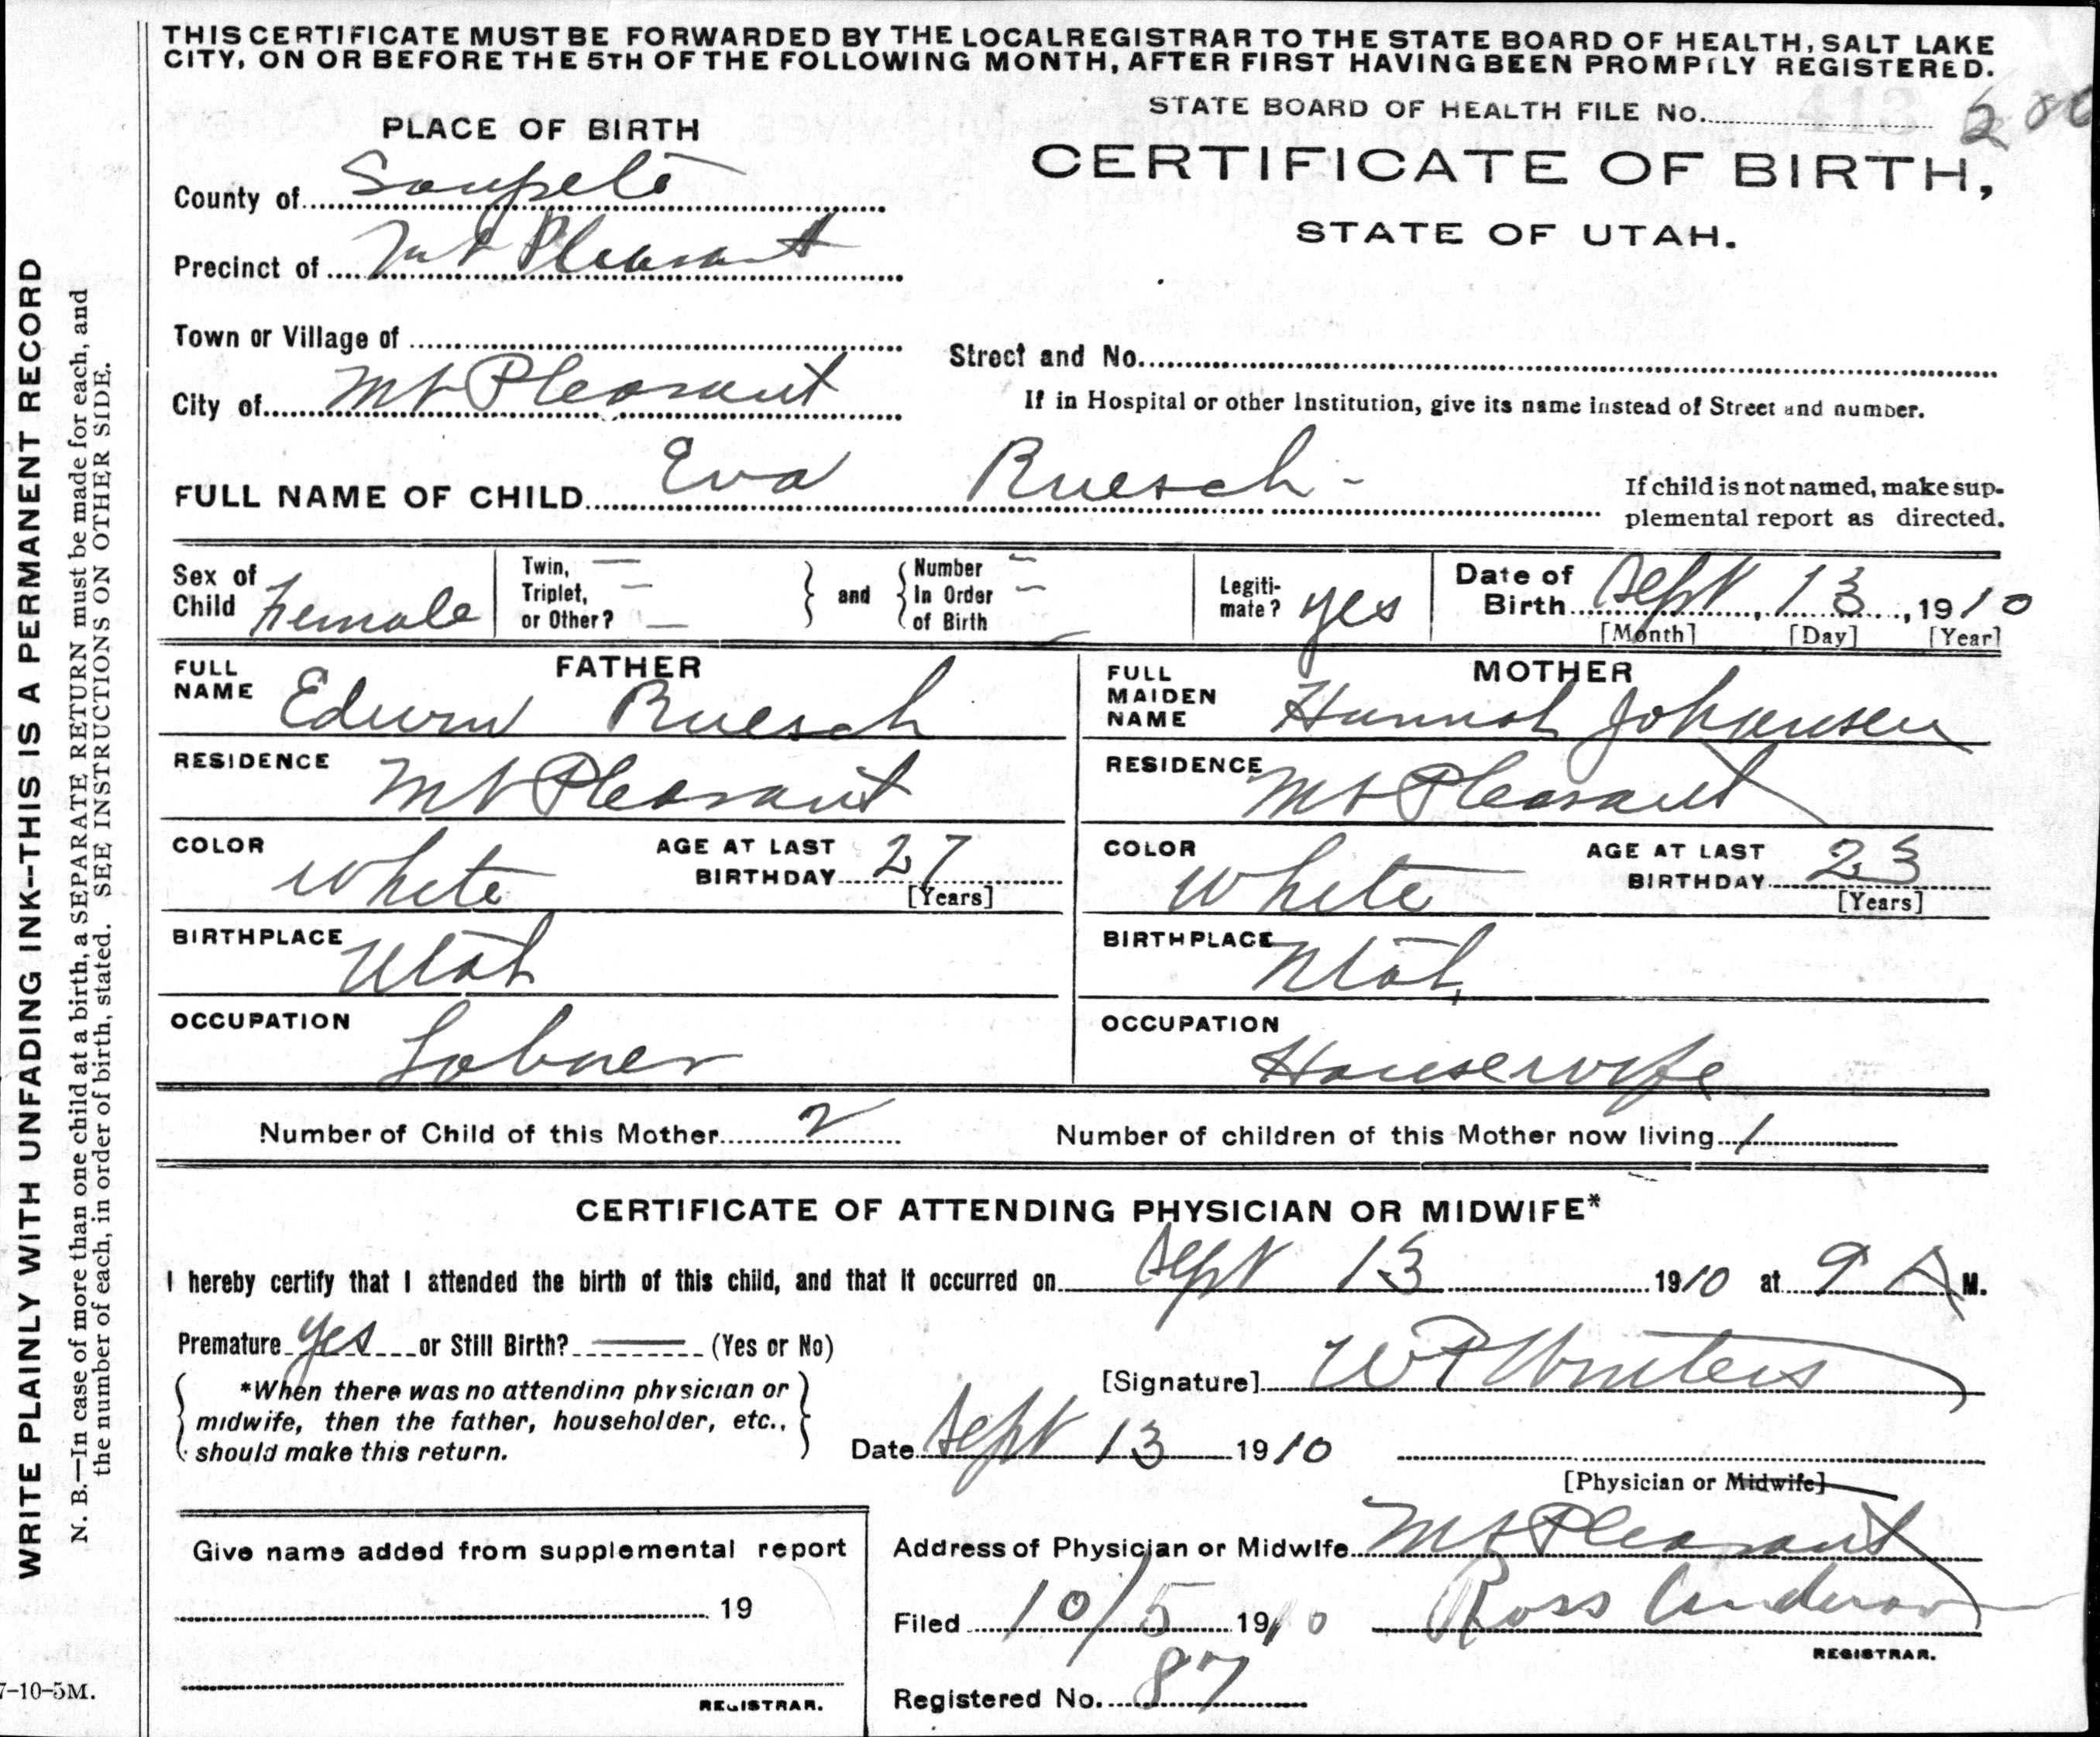 THIS CERTIFICATE MUST BE FORWARDED BY THE LOCAL REGISTRAR TO THE STATE BOARD OF HEALTH, SALT LAKE
CITY, ON OR BEFORE THE 5TH OF THE FOLLOWING MONTH, AFTER FIRST HAVING BEEN PROMPTLY REGISTERED.
STATE BOARD OF HEALTH FILE No. 200
PLACE OF BIRTH
CERTIFICATE OF BIRTH,
STATE OF UTAH.
County of Sanpete
Precinct of Mt Pleasant
Town or Village of
Street and No.
City of Mt Pleasant
If in Hospital or other Institution, give its name instead of Street and number.
FULL NAME OF CHILD Eva Ruesch -
If child is not named, make sup-
plemental report as directed.
Sex of Child Female
Twin, —
Triplet, —
or Other? —
and
Number —
In Order —
of Birth —
Legiti-
mate? yes
Date of
Birth Sept, 13, 1910
[Month] [Day] [Year]
FATHER
FULL NAME Edwin Ruesch
RESIDENCE Mt Pleasant
COLOR White AGE AT LAST BIRTHDAY 27
[Years]
BIRTHPLACE Utah
OCCUPATION Laborer
MOTHER
FULL MAIDEN NAME Hannah Johansen
RESIDENCE Mt Pleasant
COLOR White AGE AT LAST BIRTHDAY 23
[Years]
BIRTHPLACE Utah
OCCUPATION Housewife
Number of Child of this Mother 2 Number of children of this Mother now living 1
CERTIFICATE OF ATTENDING PHYSICIAN OR MIDWIFE*
I hereby certify that I attended the birth of this child, and that it occurred on Sept 13 1910 at 9 A M.
Premature yes or Still Birth? — (Yes or No)
[Signature] W P Winters
*When there was no attending physician or
midwife, then the father, householder, etc.,
should make this return.
Date Sept 13 1910
[Physician or Midwife]
Address of Physician or Midwife Mt Pleasant
Give name added from supplemental report
19
REGISTRAR.
Filed 10/5 1910 Ross Anderson
REGISTRAR.
Registered No. 87
WRITE PLAINLY WITH UNFADING INK--THIS IS A PERMANENT RECORD
N. B.—In case of more than one child at a birth, a SEPARATE RETURN must be made for each, and
the number of each, in order of birth, stated. SEE INSTRUCTIONS ON OTHER SIDE.
7-10-5M.